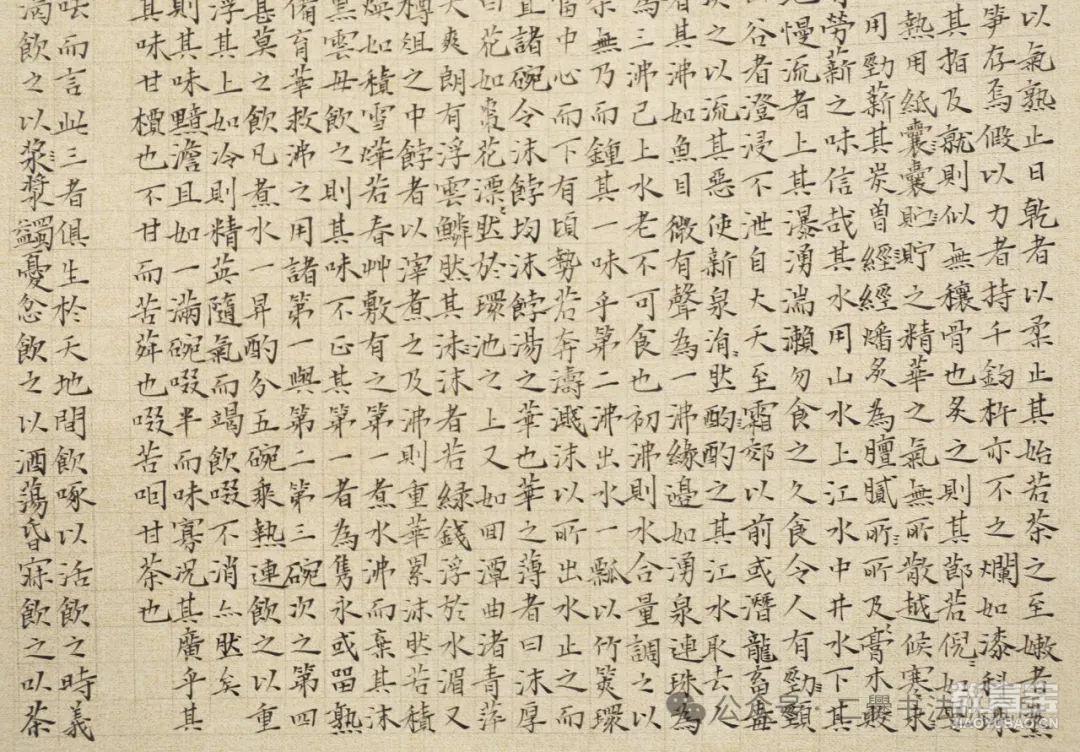 以氣熟止日乾者以柔止其始若茶之至嫩者
筍存焉假以力者持千鈞杵亦不之爛如漆科珠
其指及就則似無穰骨也炙之則其節若倪如
熱用紙囊囊貯貯之精華之氣無所散越候寒末
用勁薪其炭曾經經燔炙為膻膩所所及膏木敗
勞薪之味信哉其水用山水上江水中井水下其
慢流者上其瀑湧湍瀨勿食之久食令人有勁頸
谷者澄浸不泄自火天至霜郊以前或潛龍畜毒
決之以流其惡使新泉涓然酌酌之其江水取去
者其沸如魚目微有聲為一沸緣邊如湧泉連珠為
為三沸已上水老不可食也初沸則水合量調之以
無乃而鍾其一味乎第二沸出水一瓢以竹筴環
當中心而下有頃勢若奔濤濺沫以所出水止之而
置諸碗令沫餑均沫餑湯之華也華之薄者曰沫厚
曰花如棗花漂然於環池之上又如回潭曲渚青萍
天爽朗有浮雲鱗然其沫沫者若綠錢浮於水湄又
樽俎之中餑者以滓煮之及沸則重華累沫然若積
煥如積雪燁若春艸敷有之第一煮水沸而棄其沫
黑雲母飲之則其味不正其第一者為雋永或留熟
備育華救沸之用諸第一與第二第三碗次之第四
甚莫之飲凡煮水一升酌分五碗乘熱連飲之以重
浮其上如冷則精英隨氣而竭飲啜不消亦然矣
則其味黯澹且如一滿碗啜半而味寡況其廣乎其
其味甘檟也不甘而苦荈也啜苦咽甘茶也
呿而言此三者俱生於天地間飲啄以活飲之時義
渴飲之以漿漿蠲憂忿飲之以酒蕩昏寐飲之以茶